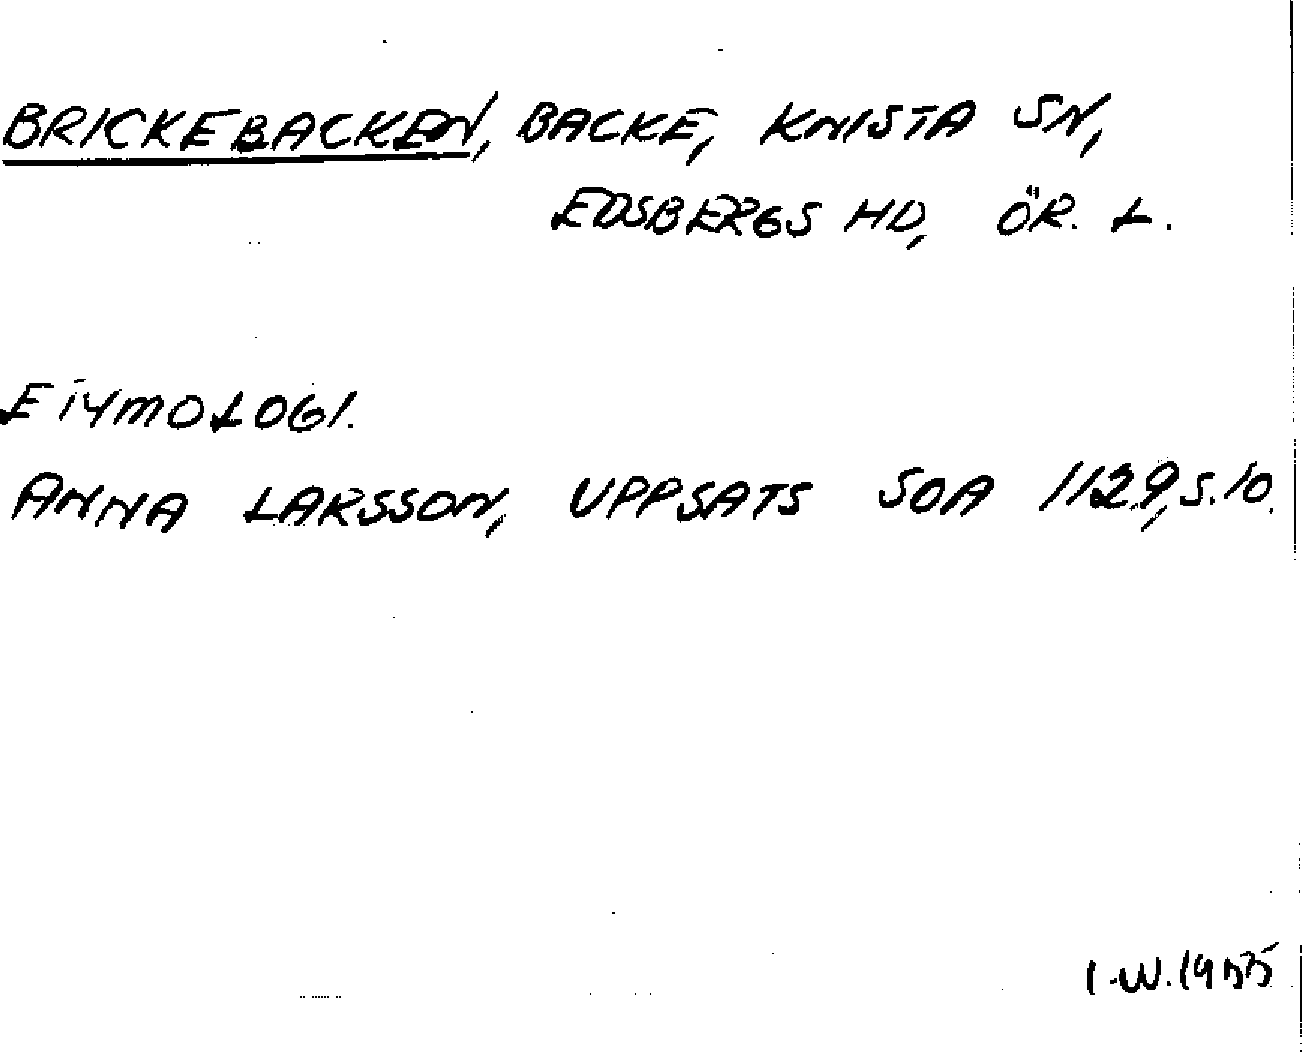 BRICKEBACKEN, BACKE, KNISTA SN,
EDSBERGS HD, ÖR. L.
ETYMOLOGI.
ANNA LARSSON, UPPSATS SOA 1129, S. 10.
I.W. 1955